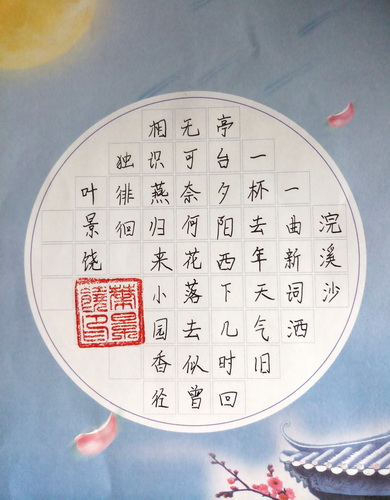 浣溪沙
一曲新词洒
一杯去年天气旧
亭台夕阳西下几时回
无可奈何花落去似曾
相识燕归来小园香径
独徘徊
叶景饶
葉景饒印